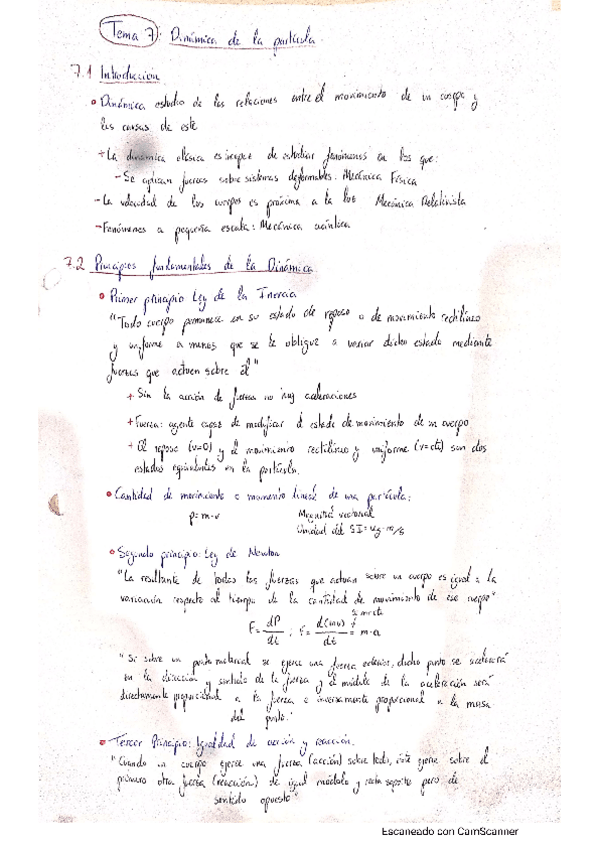 Tema 7: Dinámica de la partícula.
7.1 Introducción
• Dinámica estudio de las relaciones entre el movimiento de un cuerpo y
las causas de este
+ La dinámica clásica es incapaz de estudiar fenómenos en los que:
- Se aplican fuerzas sobre sistemas deformables: Mecánica Física
- La velocidad de los cuerpos es próxima a la luz Mecánica Relativista
- Fenómenos a pequeña escala: Mecánica cuántica
7.2 Principios fundamentales de la Dinámica
• Primer principio Ley de la Inercia
"Todo cuerpo permanece en su estado de reposo o de movimiento rectilíneo
y uniforme a menos que se le obligue a variar dicho estado mediante
fuerzas que actúen sobre él"
+ Sin la acción de fuerza no hay aceleraciones
+ Fuerza: agente capaz de modificar el estado de movimiento de un cuerpo
+ El reposo (v=0) y el movimiento rectilíneo y uniforme (v=cte) son dos
estados equivalentes en la partícula.
• Cantidad de movimiento o momento lineal de una partícula:
p=m·v Magnitud vectorial
Unidad del SI = kg·m/s
• Segundo principio: Ley de Newton
"La resultante de todas las fuerzas que actúan sobre un cuerpo es igual a la
variación respecto al tiempo de la cantidad de movimiento de ese cuerpo"
F= dP/dt ; F= d(mv)/dt = m·a
"Si sobre un punto material se ejerce una fuerza exterior, dicho punto se acelerará
en la dirección y sentido de la fuerza y el módulo de la aceleración será
directamente proporcional a la fuerza e inversamente proporcional a la masa
del punto."
• Tercer Principio: Igualdad de acción y reacción.
"Cuando un cuerpo ejerce una fuerza (acción) sobre otro, este ejerce sobre el
primero otra fuerza (reacción) de igual módulo y recta soporte pero de
sentido opuesto"
Escaneado con CamScanner